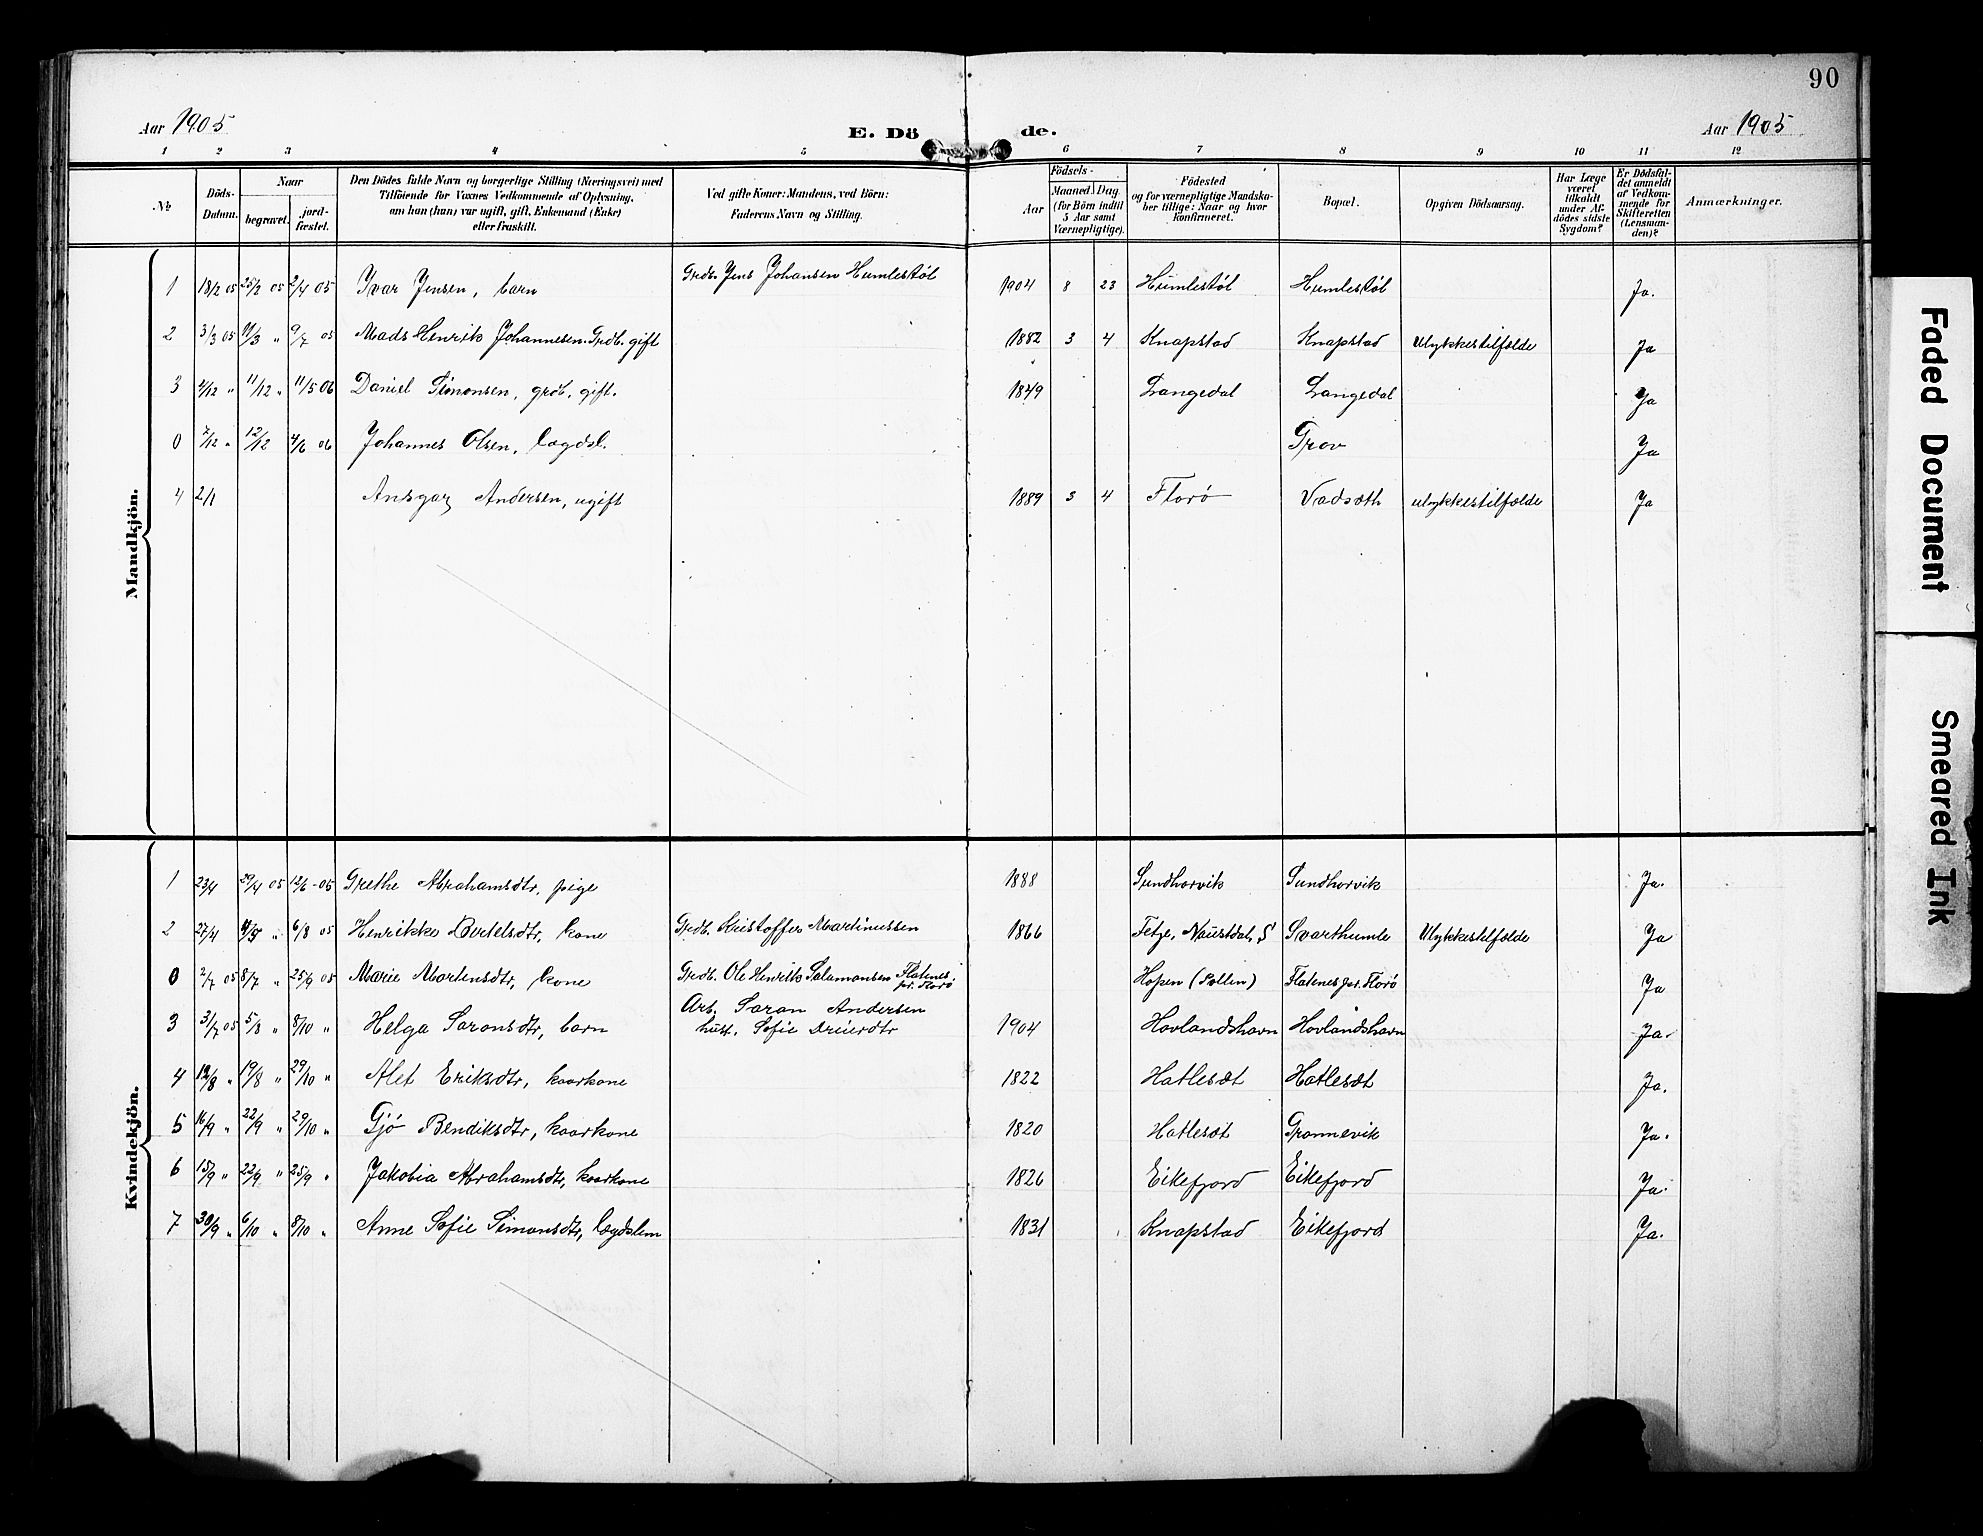 90
Aar 1905 E. Dö de. Aar 1905
1 2 3 4 5 6 7 8 9 10 11 12
№
Döds-
Datum.
Naar
begravet.
jord-
fæstet.
Den Dödes fulde Navn og borgerlige Stilling (Næringsvei) med
Tilföiende for Voxnes Vedkommende af Oplysning,
om han (hun) var ugift, gift, Enkemand (Enke)
eller fraskilt.
Ved gifte Koner: Mandens, ved Börn:
Faderens Navn og Stilling.
Födsels-
Aar
Maaned. Dag.
(for Börn indtil
5 Aar samt
Værnepligtige).
Födested
og for værnepligtige Mandska-
ber tillige: Naar og hvor
konfirmeret.
Bopæl.
Opgiven Dödsaarsag.
Har Læge
været
tilkaldt
under Af-
dödes sidste
Sygdom?
Er Dödsfal-
det anmeldt
af Vedkom-
mende for
Skifteretten
(Lensman-
den)?
Anmærkninger.
Mandkjön.
1 18/2 05 25/2 05 2/4 05 Ivar Jensen, barn Grdb. Jens Johansen Humlestøl 1904 8 23 Humlestøl Humlestøl Ja.
2 3/3 05 11/3 " 9/7 05 Mads Henrik Johannesen. Grdb. gift 1882 3 4 Knapstad Knapstad Ulykkestilfælde Ja
3 4/12 " 11/12 " 11/5 06 Daniel Simonsen, grdb. gift. 1849 Langedal Langedal Ja
0 7/12 " 12/12 4/6 06 Johannes Olsen, lægdsl. Trov Ja
4 2/1 Ansgar Andersen, ugift 1889 3 4 Florø Vadsøth ulykkestilfælde Ja
Kvindekjön.
1 23/4 29/4 05 12/6 - 05 Grethe Abrahamsdtr, pige 1888 Sundhorvik Sundhorvik Ja.
2 27/4 4/5 " 6/8 05 Henrikke Bertelsdtr, kone Grdb. Kristoffer Martinussen 1866 Fetje, Naustdal, S Svarthumle Ulykkestilfælde Ja
0 2/7 05 8/7 " 25/9 05 Marie Mortensdtr, kone Grdb. Ole Henrik Salamonsen Flatenes, pr. Florø Hopen (Pollen) Flatenes pr. Florø Ja
3 31/7 05 5/8 " 8/10 " Helga Saronsdtr, barn Arb. Saran Andersen
hust. Sofie Dreierdtr 1904 Hovlandshavn Hovlandshavn Ja.
4 12/8 " 19/8 " 29/10 " Alet Eriksdtr, kaarkone 1822 Hatlesæt Hatlesæt Ja.
5 16/9 " 22/9 " 29/10 " Gjø Bendiksdtr, kaarkone 1820 Hatlesæt Grønnevik Ja.
6 15/9 " 22/9 " 25/9 " Jakobia Abrahamsdtr, kaarkone 1826 Eikefjord Eikefjord Ja.
7 30/9 " 6/10 " 8/10 " Anne Sofie Simonsdtr, lægdslem 1831 Knapstad Eikefjord Ja.
Faded Document
Smeared Ink